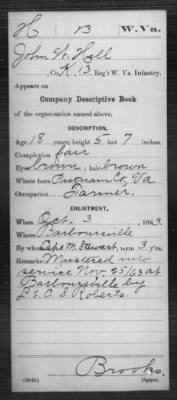 H 13 W. Va.
John W. Hall
, Co. K, 13 Reg't W. Va. Infantry.
Appears on
Company Descriptive Book
of the organization named above.
DESCRIPTION.
Age 18 years; height 5 feet 7 inches.
Complexion fair
Eyes brown; hair brown
Where born Putnam Co, Va
Occupation Farmer
ENLISTMENT.
When Oct. 3, 1863
Where Barboursville
By whom Capt M. Stewart, term 3 y'rs.
Remarks: Mustered into
service Nov. 25/63 at
Barboursville by
Lt. C. S. Roberts.
Brooks
Copyist.